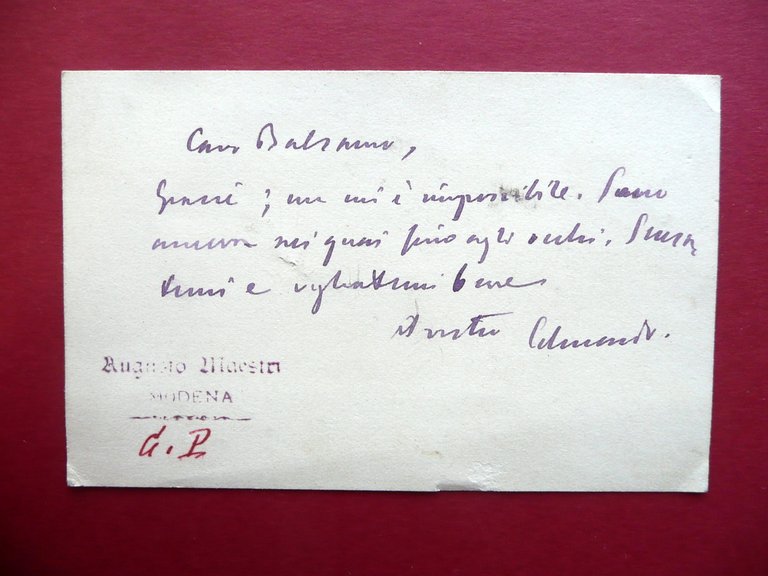 Caro Balsamo,
Grazie; ma mi è impossibile. Sono
ancora nei guai fino agli occhi. Scusa
temi e vogliatemi bene
il vostro Edmondo.
Augusto Maestri
MODENA
G. P